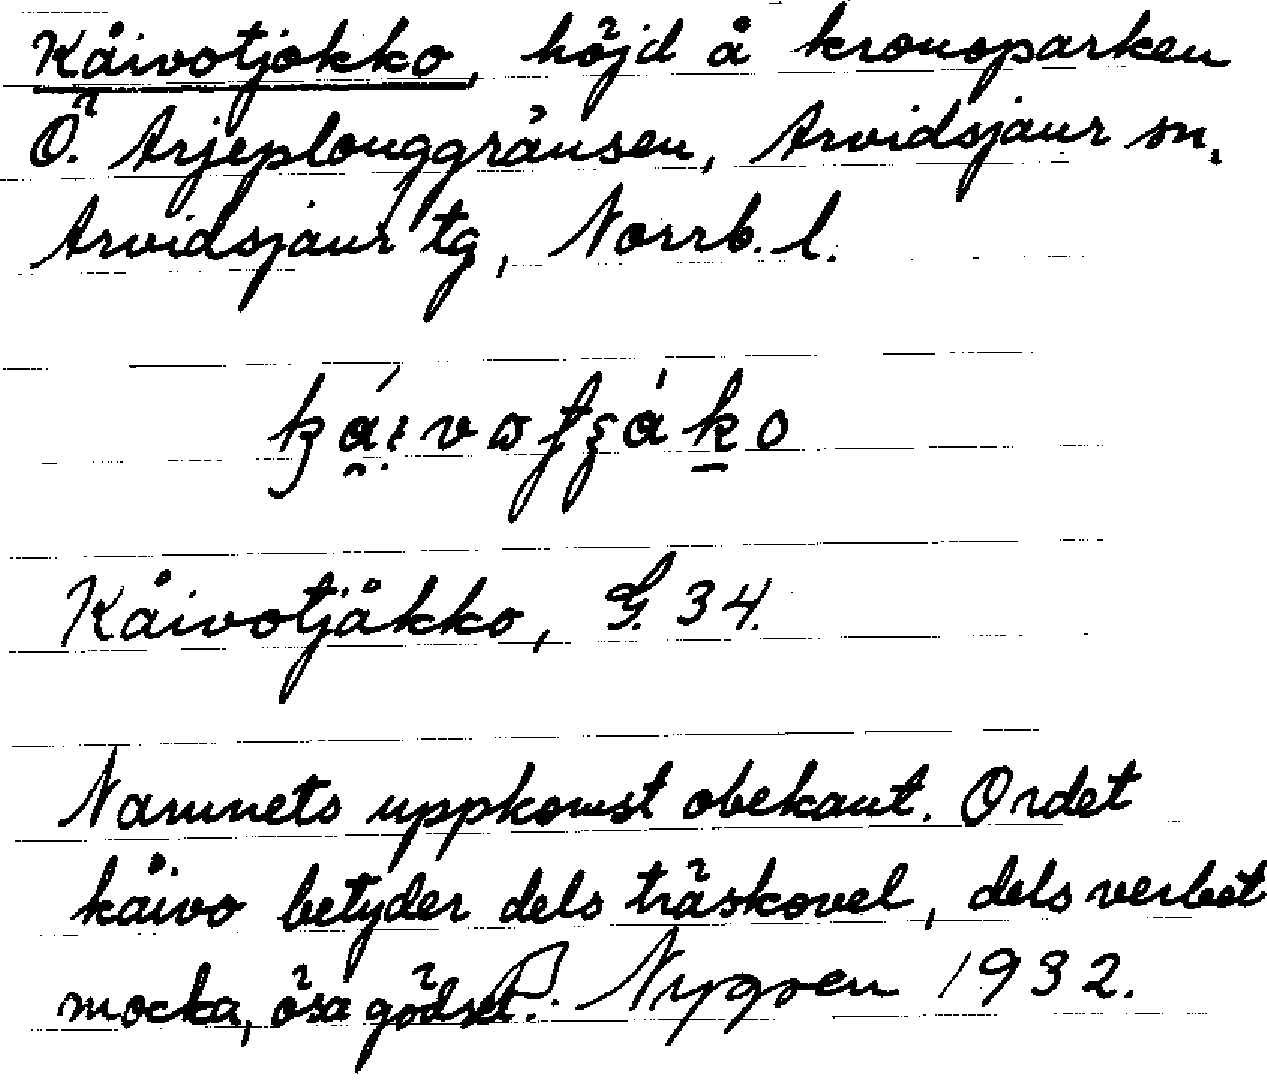 Kåivotjokko, höjd å kronoparken
Ö. Arjeplouggränsen, Arvidsjaur sn,
Arvidsjaur tg, Norrb. l.
Kåivotjåkko, G. 34.
Namnets uppkomst obekant. Ordet
kåivo betyder dels träskovel, dels verbet
mocka, ösa gödsel. Nygren 1932.